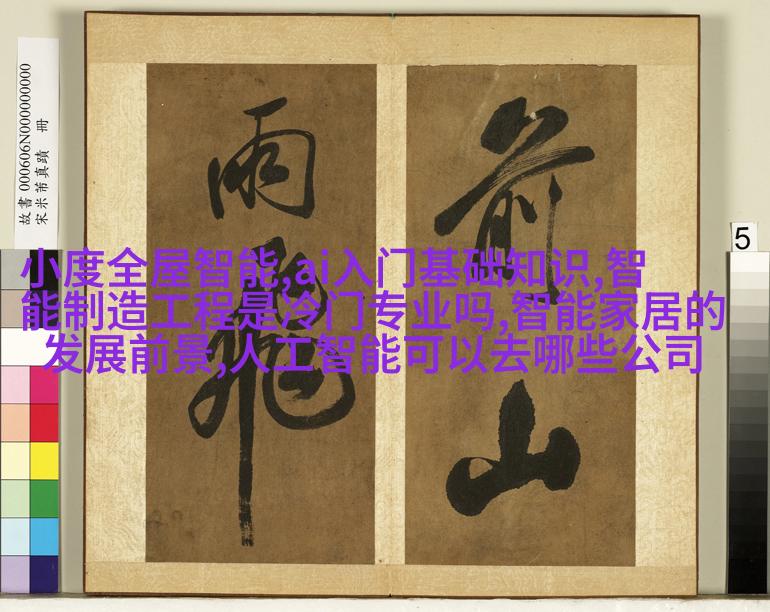 小度全屋智能,ai入门基础知识,智
能制造工程是冷门专业吗,智能家居的
发展前景,人工智能可以去哪些公司
前山
雨飛
故書 000606N000000000
宋米芾真蹟 冊
5